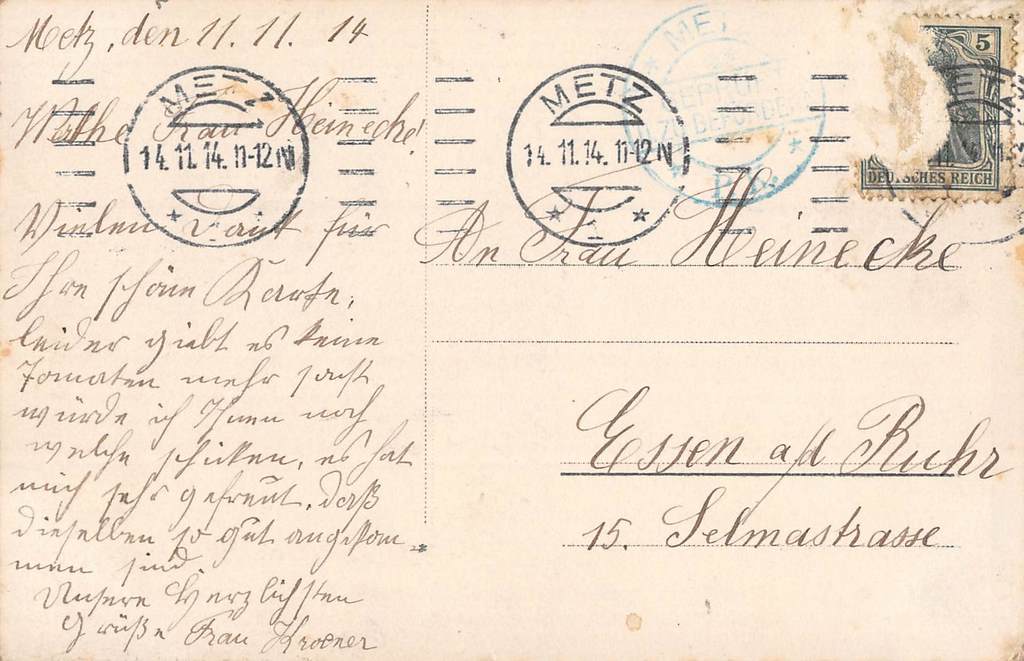 Metz, den 11. 11. 14
Werthe Frau Heinecke!
Vielen Dank für
Ihre schöne Karte,
leider giebt es keine
Tomaten mehr sonst
würde ich Ihnen noch
welche schicken, es hat
mich sehr gefreut, daß
dieselben so gut angekom-
men sind.
Unsere Herzlichsten
Grüße Frau Kroener
METZ
14.11.14. 11-12 N
1
METZ
14.11.14. 11-12 N
1
METZ
GEPRÜFT
ZU BEFÖRDERN
5
DEUTSCHES REICH
An Frau Heinecke
Essen a/d Ruhr
15. Selmastrasse